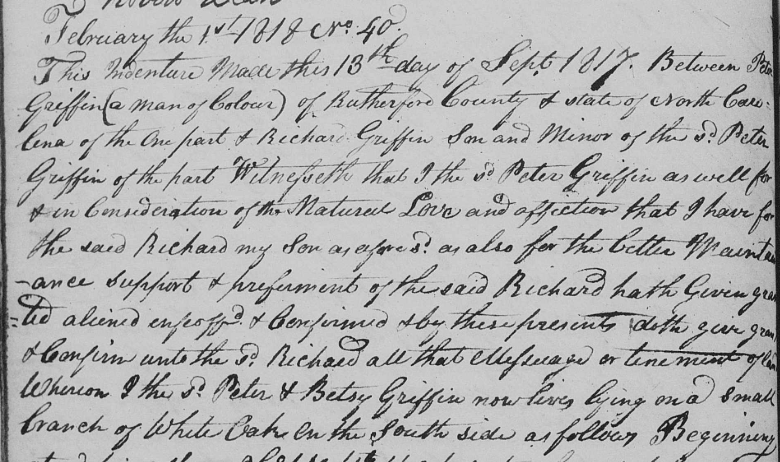 To Robert Dean
February the 1st 1818 No. 40.
This Indenture Made this 13th day of Sept. 1817. Between Peter
Griffin (a man of Colour) of Rutherford County & state of North Caro-
lena of the One part & Richard Griffin Son and Minor of the sd. Peter
Griffin of the part Witnesseth that I the sd Peter Griffin as well for
& in Consideration of the Matured Love and affiction that I have for
the said Richard my Son as afore sd. as also for the better Maintan
-ance support & preferment of the said Richard hath Given gran
=ted aliened enfeoffd & Confirmed & by these presents doth give grant
& Confirm unto the sd. Richard all that Messuage or tenement of
Whereon I the sd. Peter & Betsy Griffin now lives lying on a Small
branch of White Oak on the South side as follows Beginning